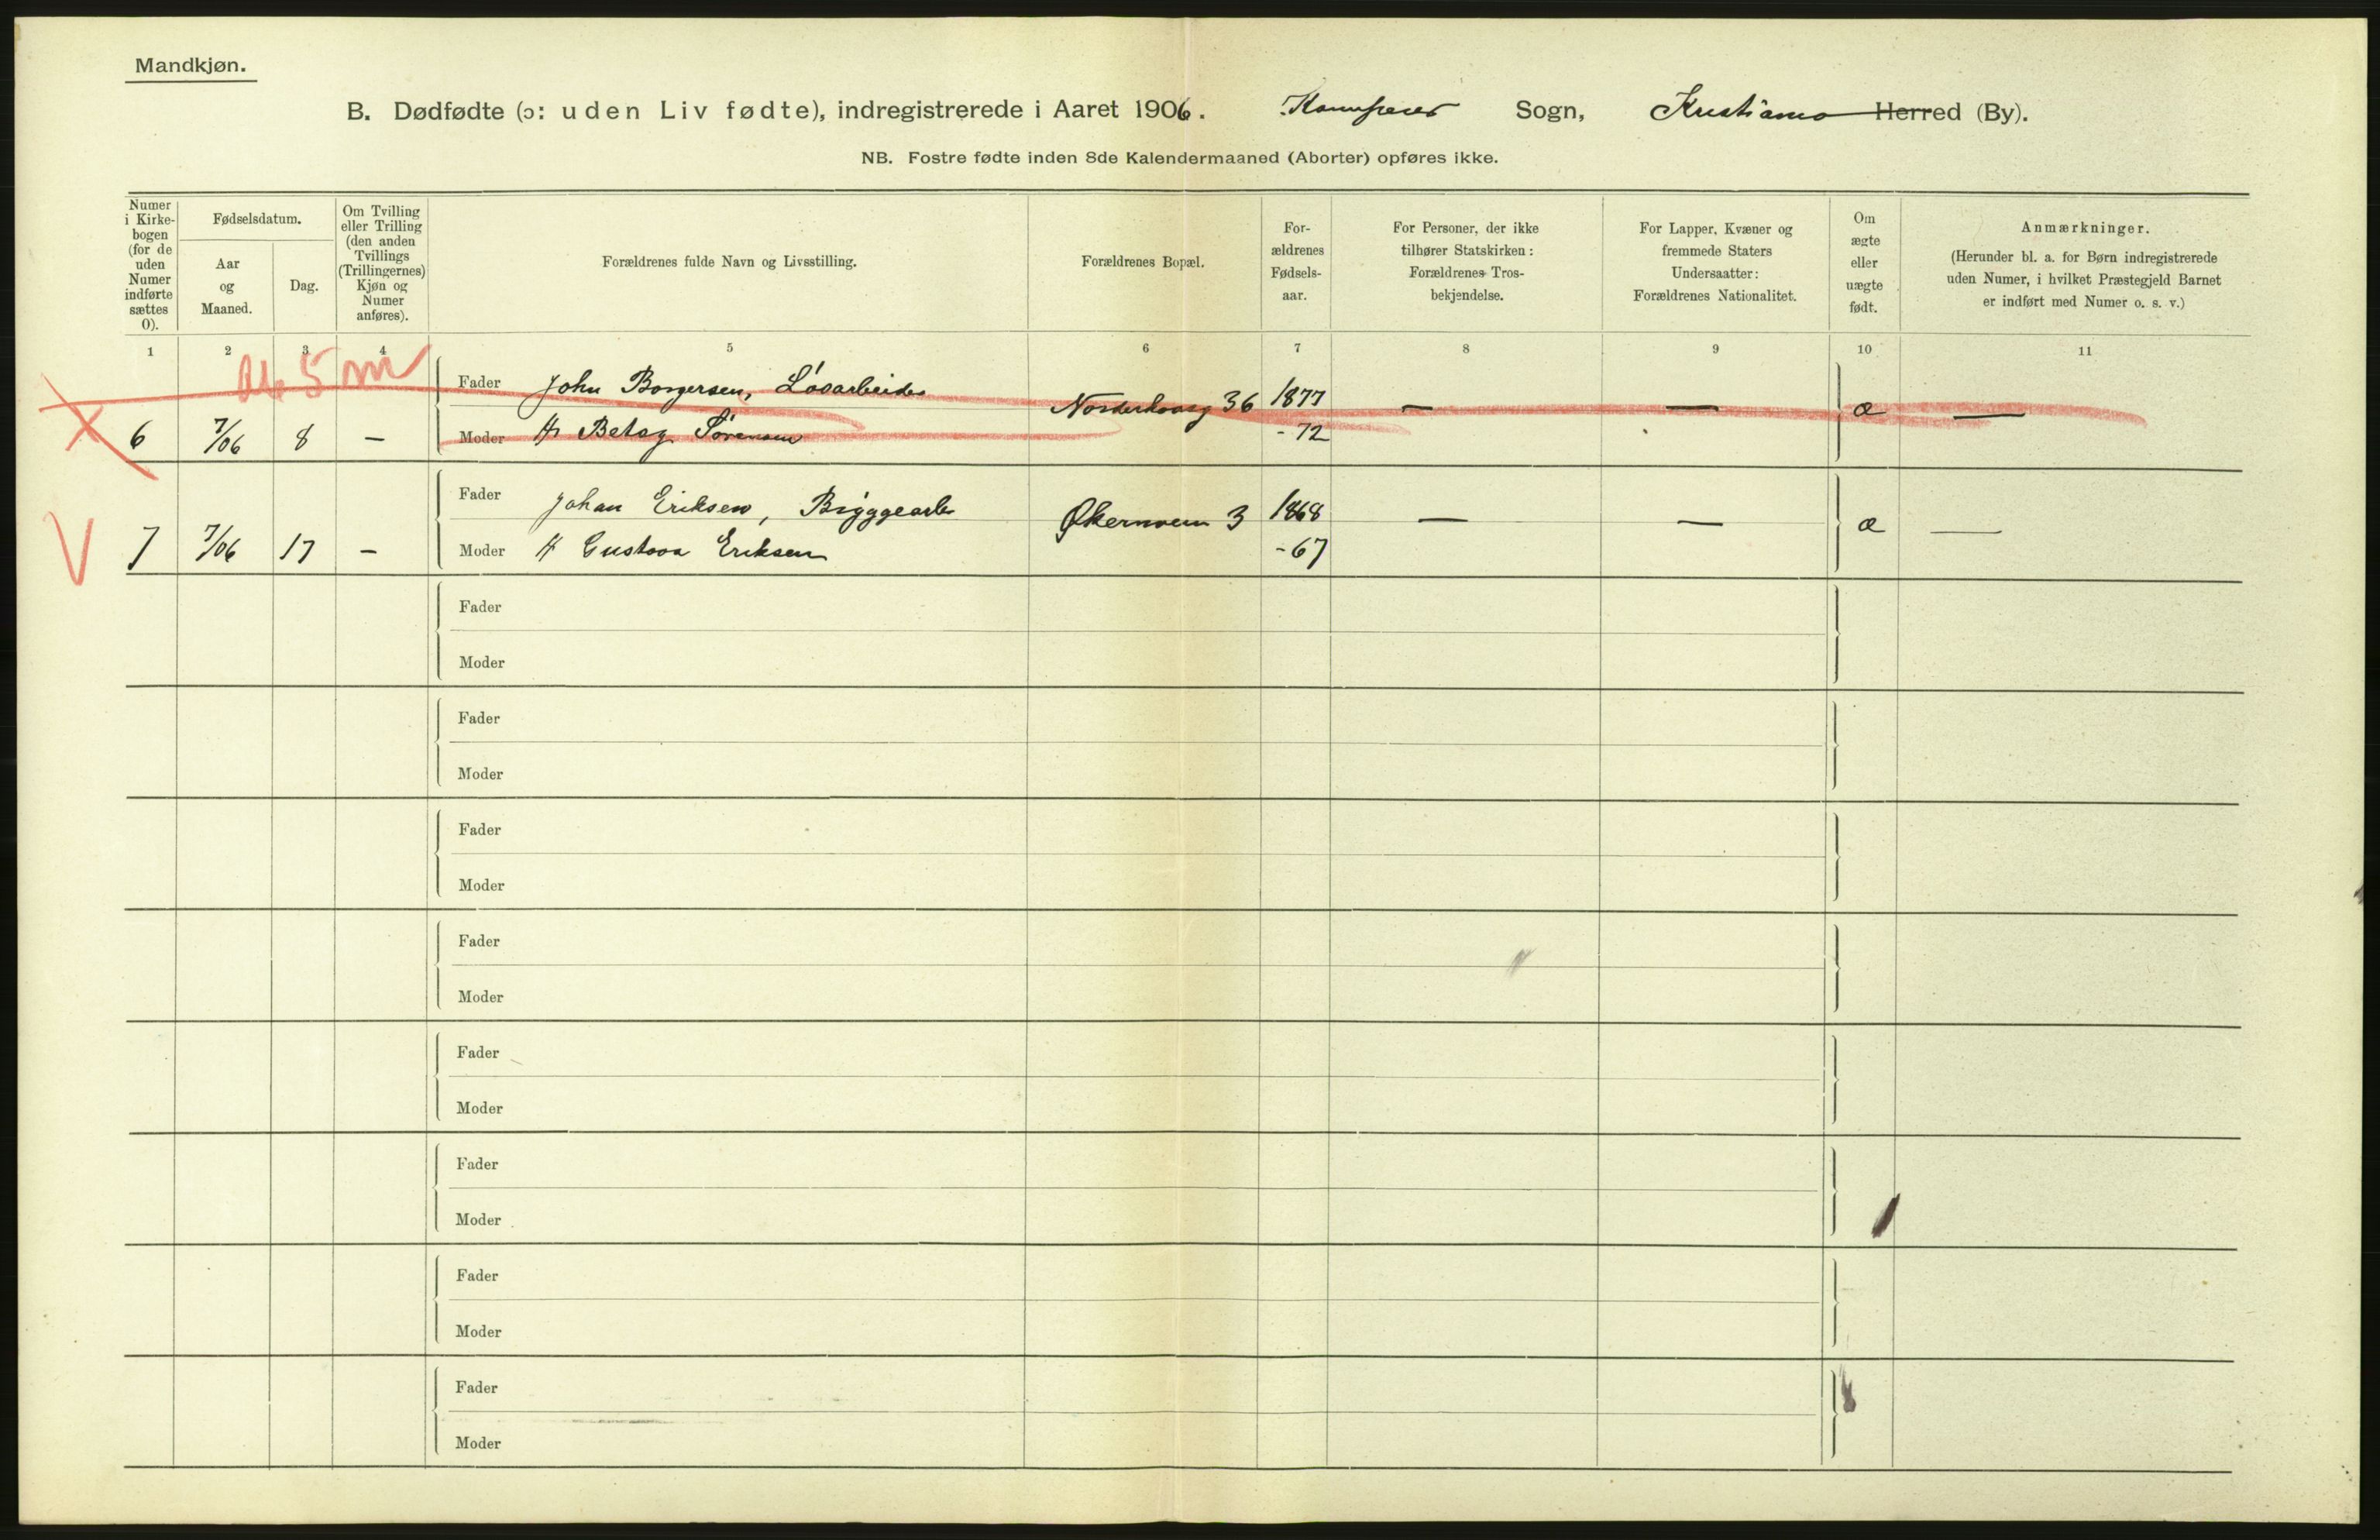 Mandkjøn.
B. Dødfødte (ɔ: uden Liv fødte), indregistrerede i Aaret 1906. Kampens Sogn, Kristiania Herred (By).
NB. Fostre fødte inden 8de Kalendermaaned (Aborter) opføres ikke.
Numer i Kirkebogen (for de uden Numer indførte sættes 0).
Fødselsdatum.
Aar og Maaned.
Dag.
Om Tvilling eller Trilling (den anden Tvillings (Trillingernes) Kjøn og Numer anføres).
Forældrenes fulde Navn og Livsstilling.
Forældrenes Bopæl.
Forældrenes Fødselsaar.
For Personer, der ikke tilhører Statskirken: Forældrenes Trosbekjendelse.
For Lapper, Kvæner og fremmede Staters Undersaatter: Forældrenes Nationalitet.
Om ægte eller uægte født.
Anmærkninger.
(Herunder bl. a. for Børn indregistrerede uden Numer, i hvilket Præstegjeld Barnet er indført med Numer o. s. v.)
1 2 3 4 5 6 7 8 9 10 11
5 m
Fader John Borgersen, Løsarbeider Norderhovsg 36 1877 — — æ —
6 7/06 8 — Moder H Betzy Sørensen - 72
Fader Johan Eriksen, Bryggearb Økernvein 3 1868 — — æ —
7 7/06 17 — Moder H Gustava Eriksen - 67
Fader
Moder
Fader
Moder
Fader
Moder
Fader
Moder
Fader
Moder
Fader
Moder
Fader
Moder
Fader
Moder